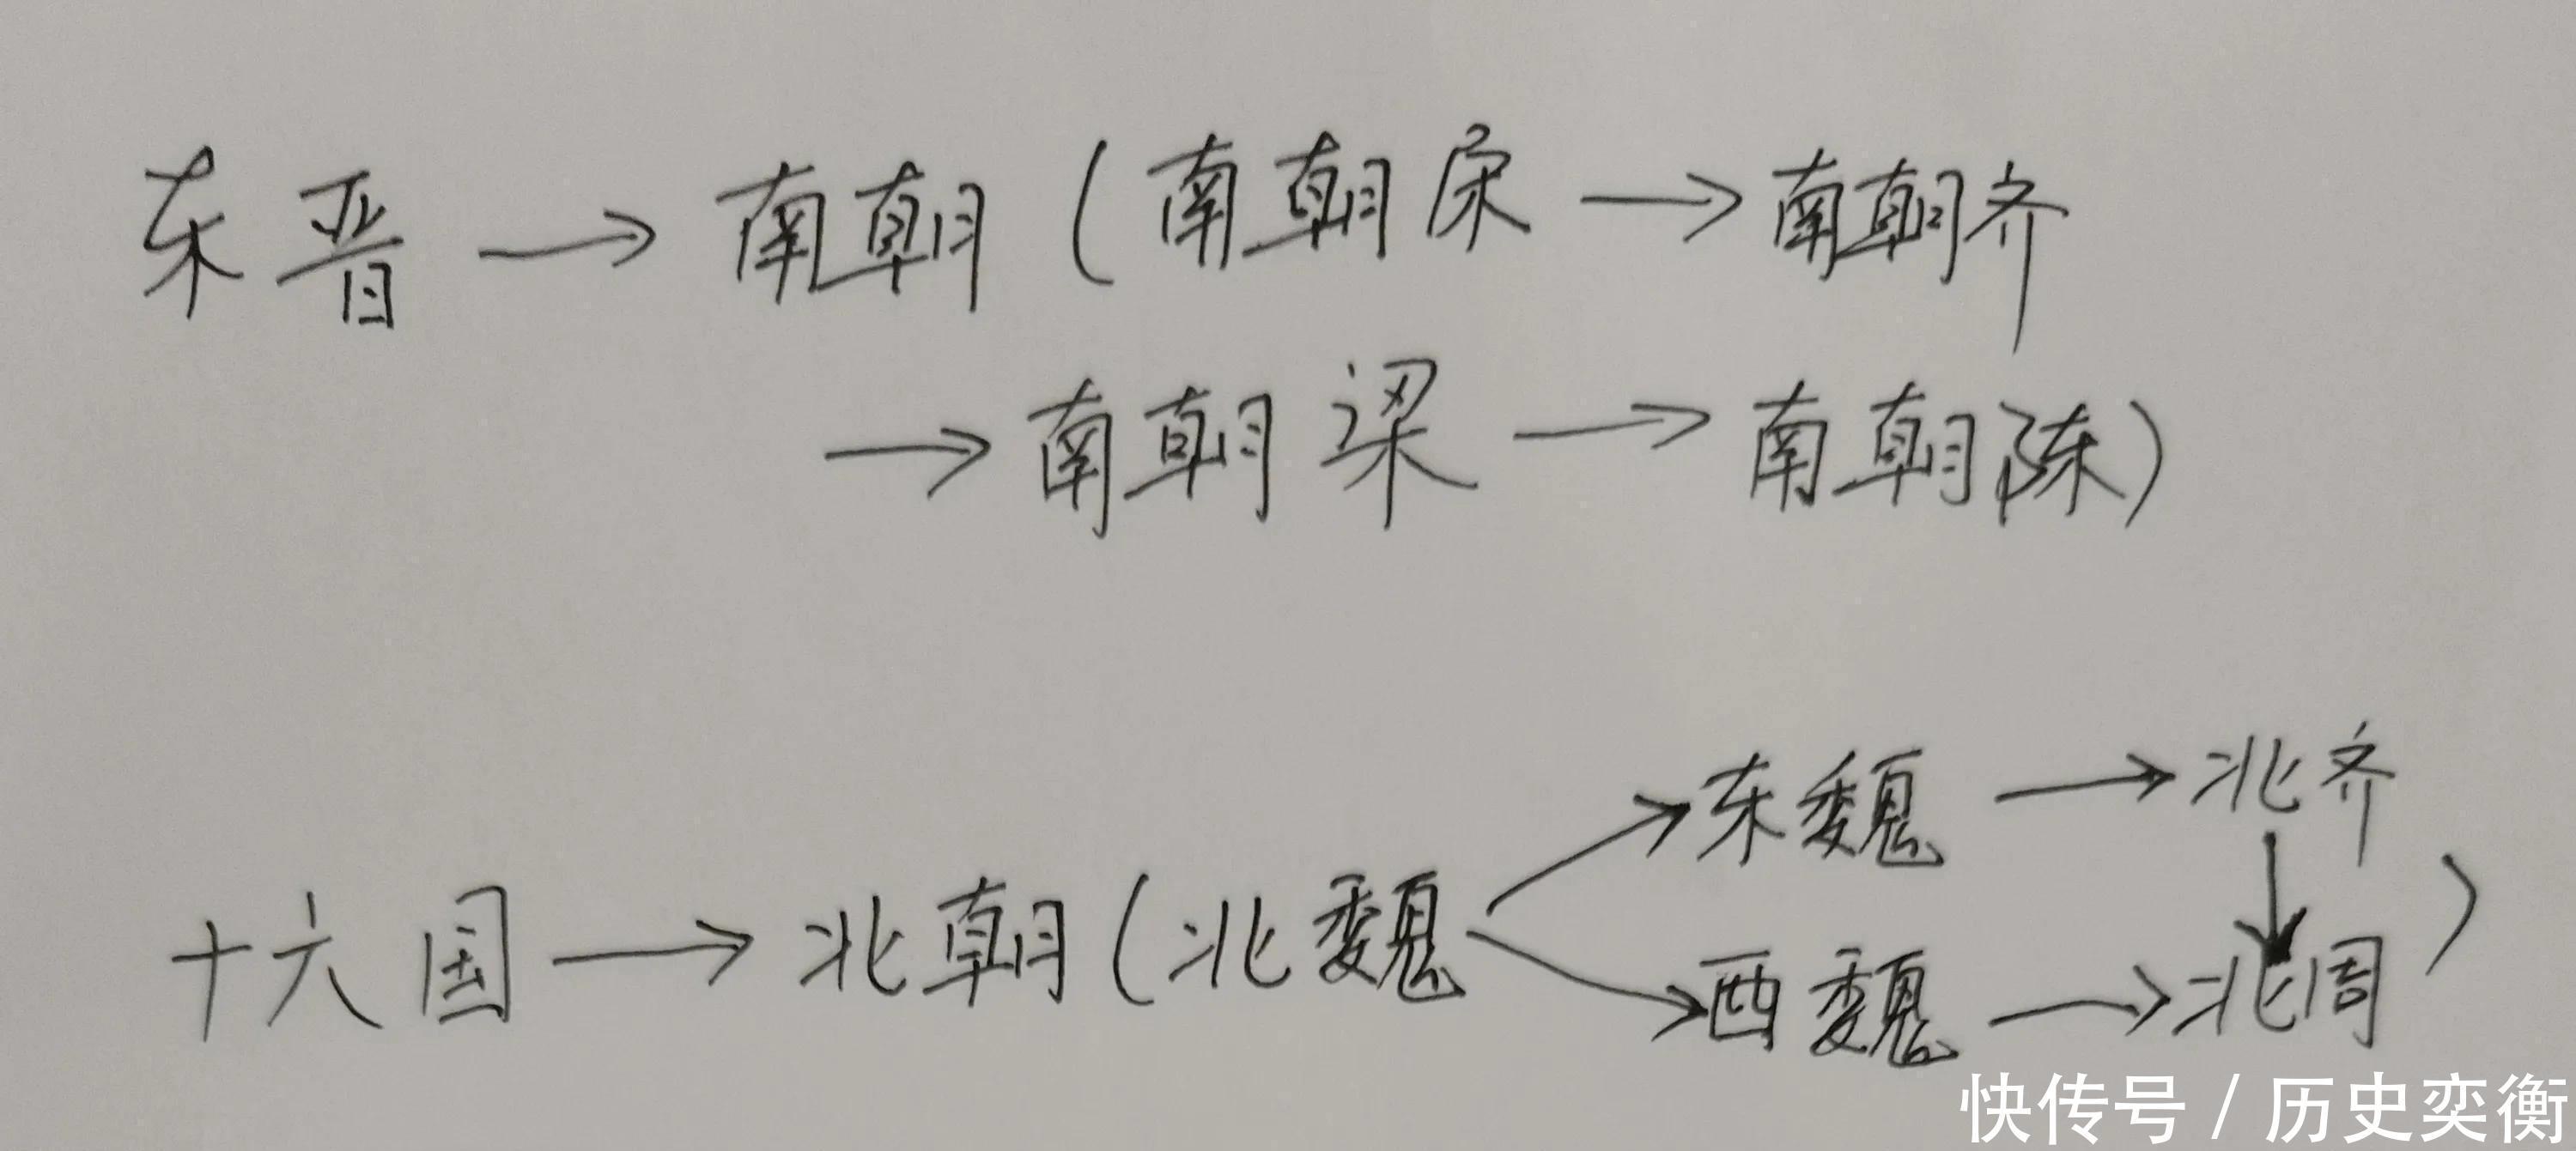 东晋→南朝(南朝宋→南朝齐
→南朝梁→南朝陈)
→东魏→北齐
十六国→北朝(北魏 ↓)
→西魏→北周
快传号/历史奕衡